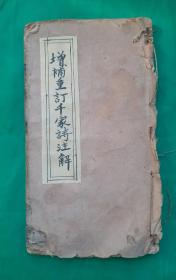 增補重訂千家詩注解